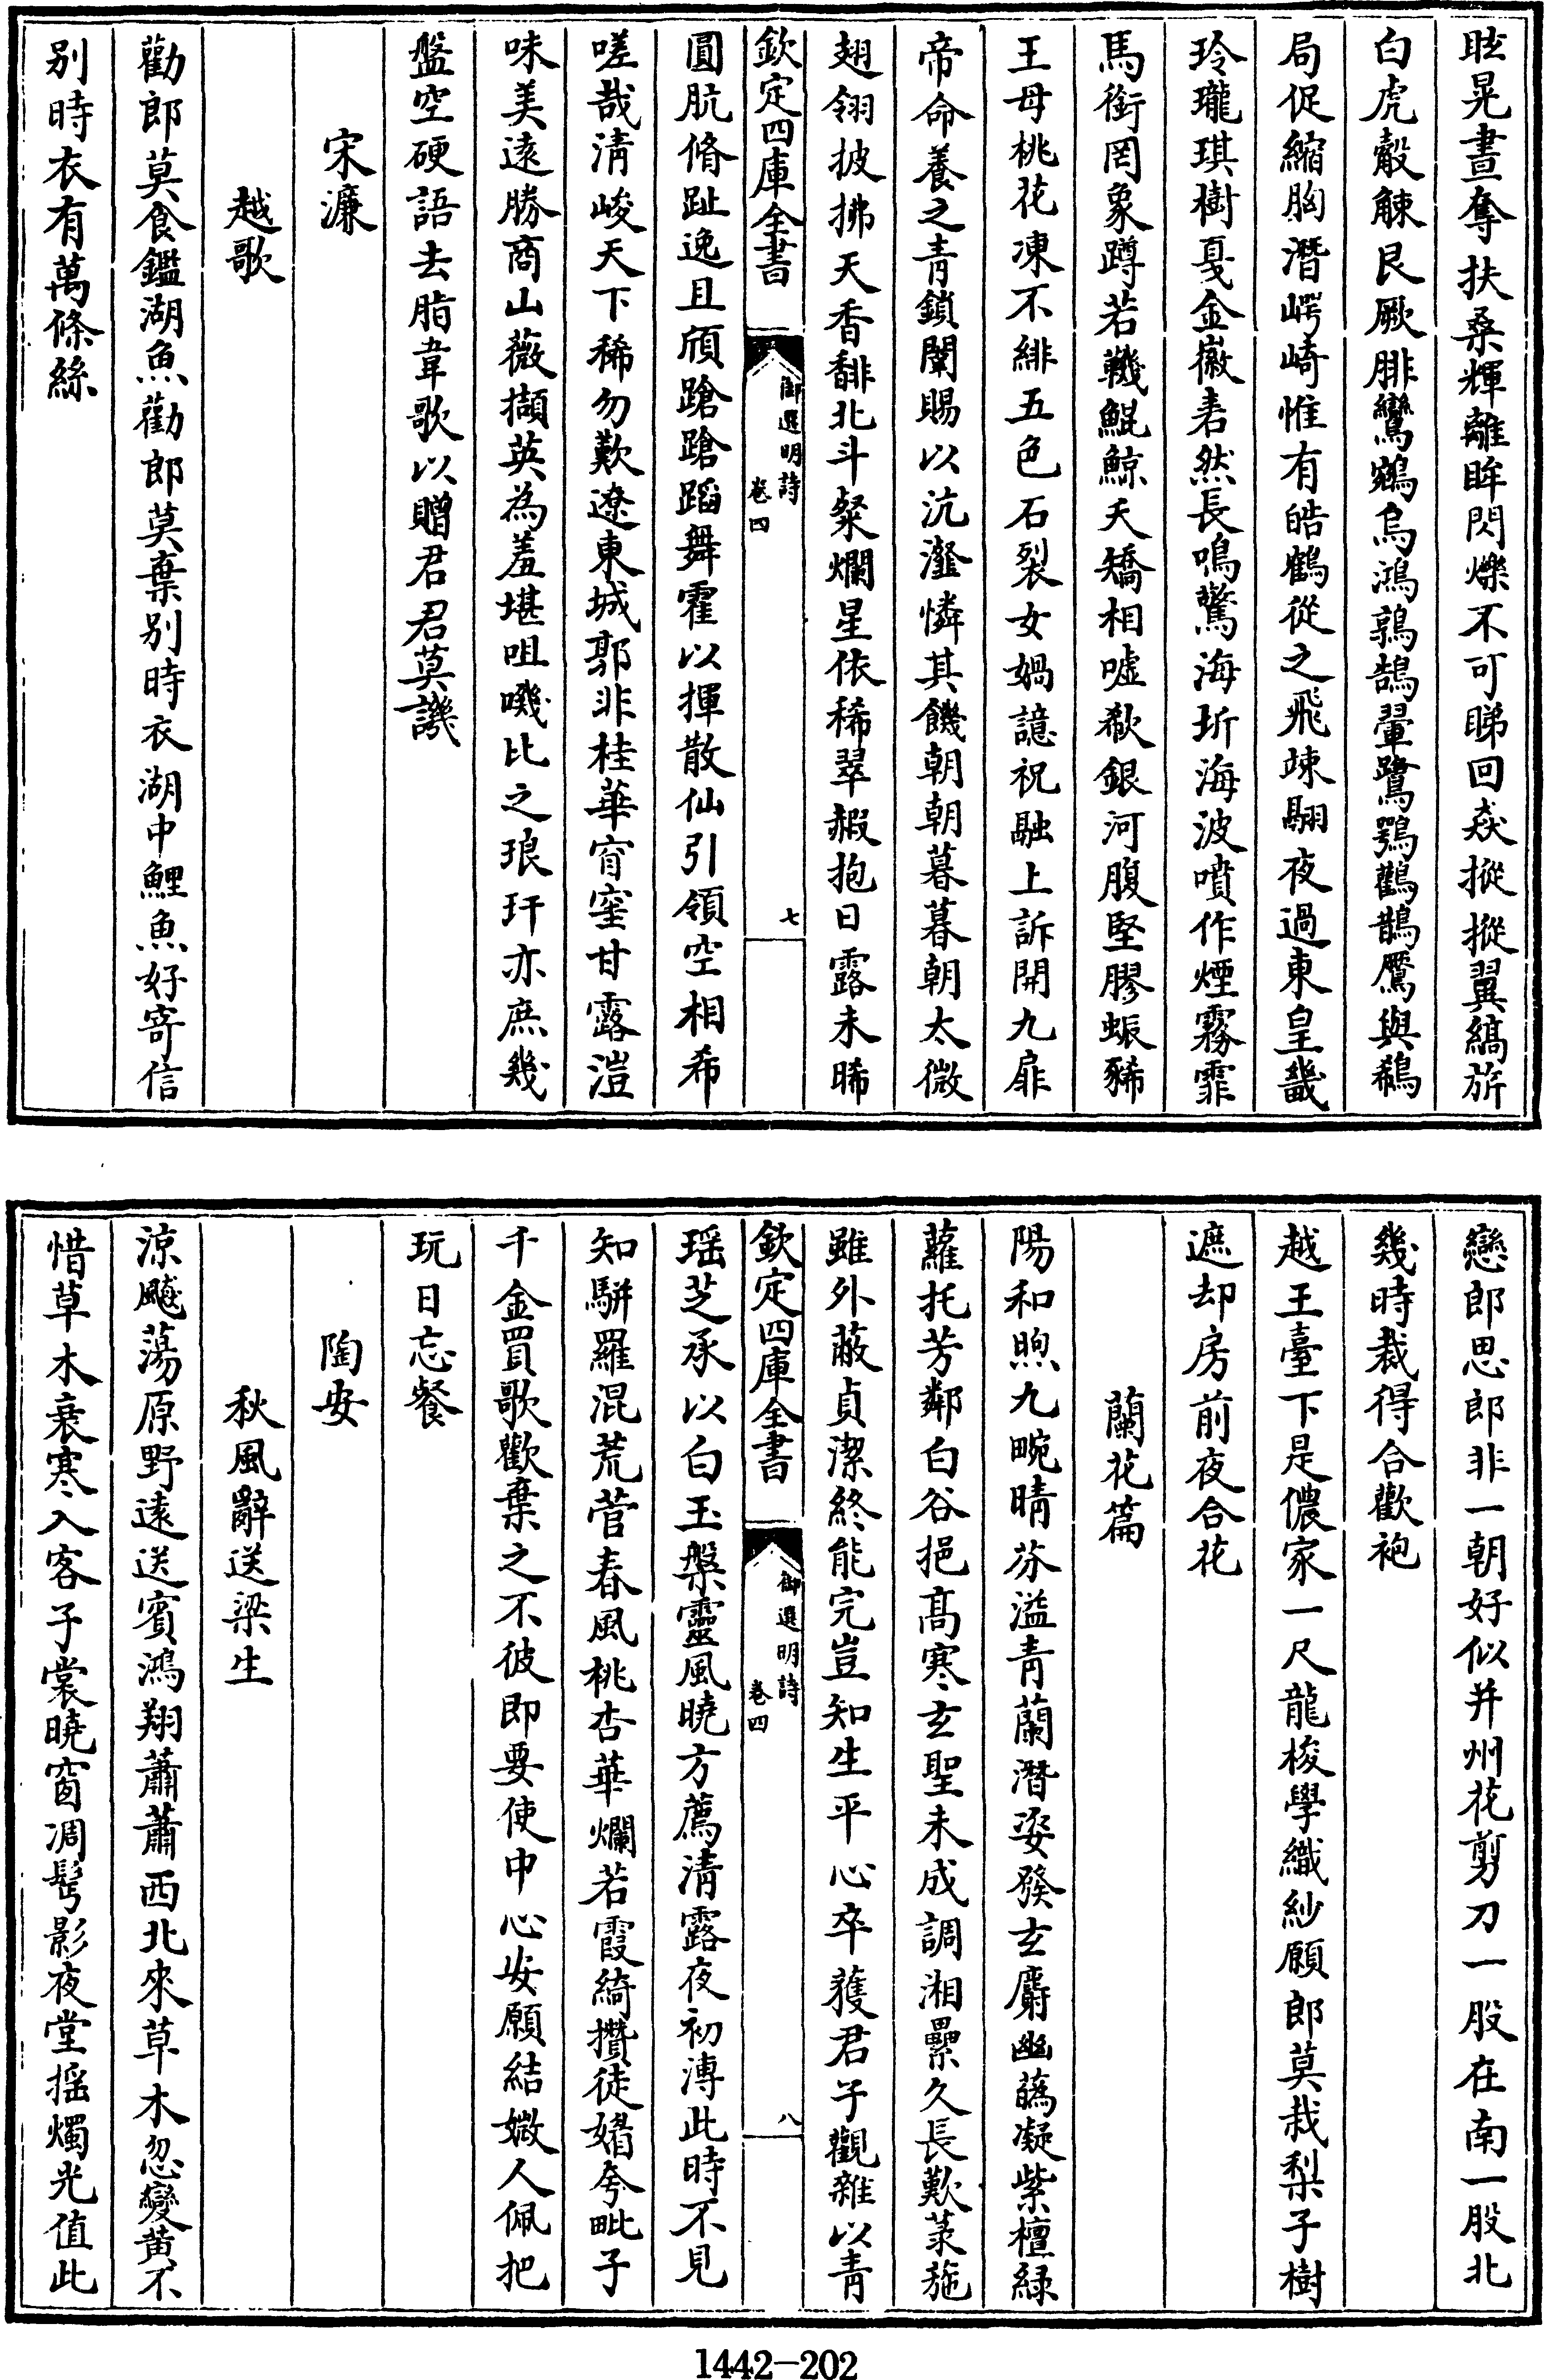 眩晃晝奪扶桑輝離眸閃爍不可睇回猋摐摐翼縞旂
白虎觳觫艮厥腓鸞鵷鳥鴻鶉鵠翬鷺鶚鸛鵲鷹與鵗
局促縮朒潛崿崎惟有皓鶴從之飛竦翤夜過東皇畿
玲瓏琪樹戛金徽砉然長鳴驚海圻海波噴作煙霧霏
馬銜罔象蹲若鞿鯤鯨夭矯相噓欷銀河腹堅膠蜄豨
王母桃花凍不緋五色石裂女媧譩祝融上訴開九扉
帝命養之青鎖闈賜以沆瀣憐其饑朝朝暮暮朝太微
翅翎披拂天香馡北斗粲爛星依稀翠赮抱日露未晞
欽定四庫全書
御選明詩
卷四
七
圓肮脩趾逸且頎蹌蹌蹈舞霍以揮散仙引領空相希
嗟哉清峻天下稀勿歎遼東城郭非桂華窅窊甘露溰
味美遠勝商山薇擷英為羞堪咀嘰比之琅玕亦庶幾
盤空硬語去脂韋歌以贈君君莫譏
宋濂
越歌
勸郎莫食鑑湖魚勸郎莫棄别時衣湖中鯉魚好寄信
别時衣有萬條絲
戀郎思郎非一朝好似并州花剪刀一股在南一股北
幾時裁得合歡袍
越王臺下是儂家一尺龍梭學織紗願郎莫栽梨子樹
遮却房前夜合花
蘭花篇
陽和煦九畹晴芬溢青蘭潛姿發玄麝幽蘤凝紫檀緑
蘿托芳鄰白谷挹髙寒玄聖未成調湘纍久長歎菉葹
雖外蔽貞潔終能完豈知生平心卒獲君子觀雜以青
欽定四庫全書
御選明詩
卷四
八
瑶芝承以白玉槃靈風曉方薦清露夜初漙此時不見
知駢羅混荒菅春風桃杏華爛若霞綺攢徒媚夸毗子
千金買歌歡棄之不彼即要使中心安願結媺人佩把
玩日忘餐
陶安
秋風辭送梁生
涼飈蕩原野遠送賓鴻翔蕭蕭西北來草木忽變黄不
惜草木衰寒入客子裳曉窗凋髩影夜堂揺燭光值此
1442-202